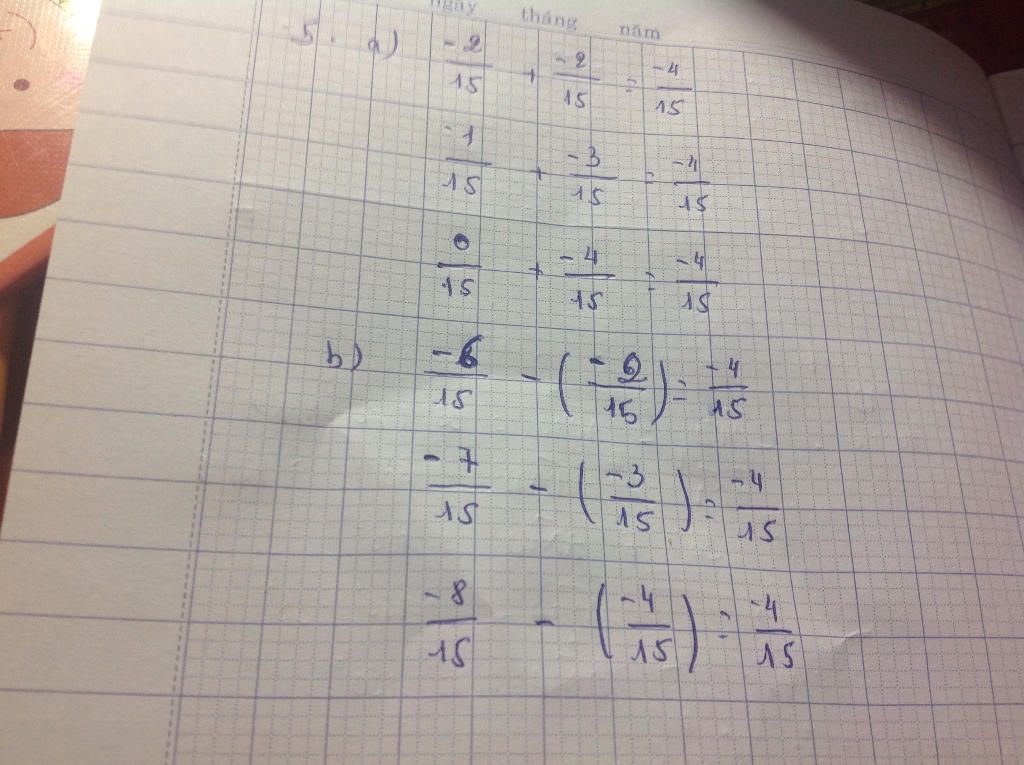 ngày tháng năm
5. a) -2/15 + -2/15 = -4/15
-1/15 + -3/15 = -4/15
0/15 + -4/15 = -4/15
b) -6/15 - (-2/15) = -4/15
-7/15 - (-3/15) = -4/15
-8/15 - (-4/15) = -4/15